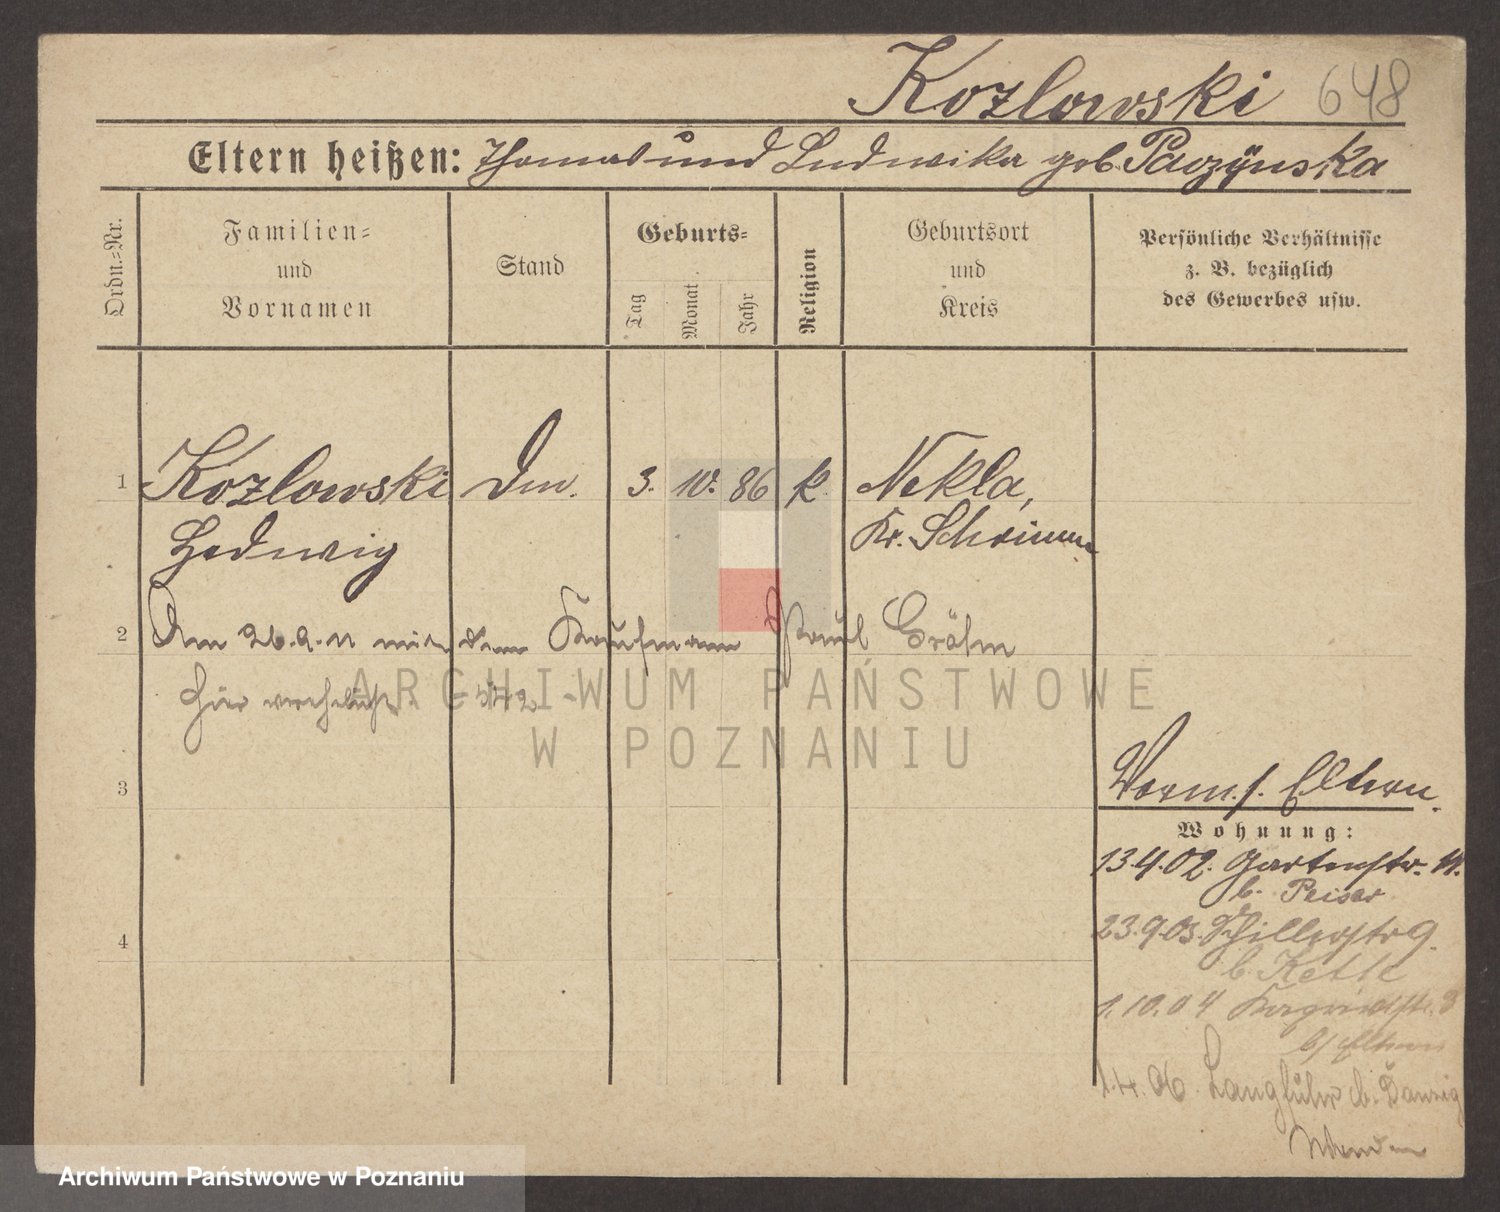 Kozlowski 648
Eltern heißen: Thomas und Ludwika geb. Paczynska
Ordn.-Nr.
Familien-
und
Vornamen
Stand
Geburts-
Tag
Monat
Jahr
Religion
Geburtsort
und
Kreis
Persönliche Verhältnisse
z. B. bezüglich
des Gewerbes usw.
1 Kozlowski 3. 10. 86 k. Nekla,
Hedwig Kr. Schrimm
2 Am 26.9.11 mit dem Kaufmann Paul Grähn
hier verehelicht.
ARCHIWUM PAŃSTWOWE
W POZNANIU
3
Eltern.
Wohnung:
13.4.02. Gartenstr. 11.
b. Peiser
4
23.9.03. Schillerstr 9.
b.
1.10.04
b/ Eltern
1.4.06. Langfuhr b. Danzig
Wenden
Archiwum Państwowe w Poznaniu